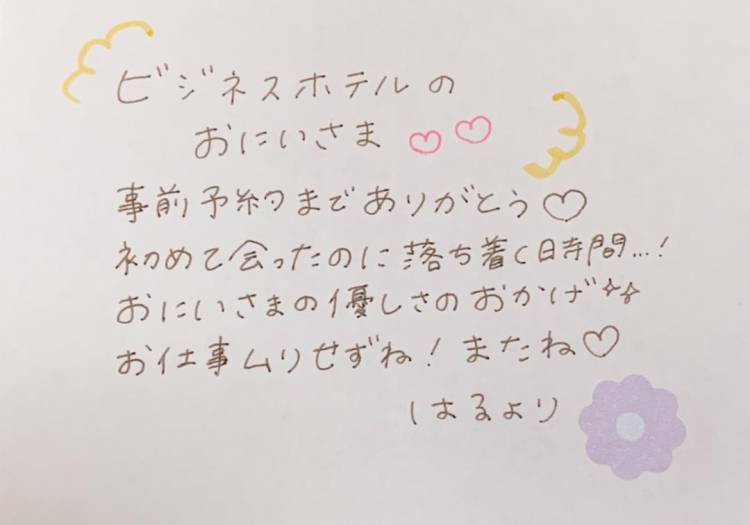 ビジネスホテルの
おにいさま♡♡
事前予約までありがとう♡
初めて会ったのに落ち着く時間…!
おにいさまの優しさのおかげ✨
お仕事ムリせずね!またね♡
はるより